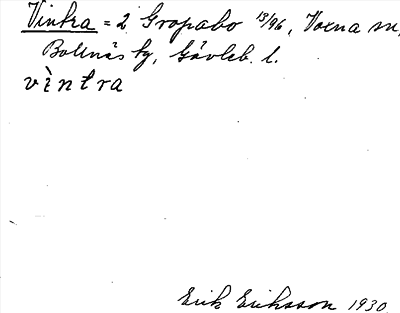 Vintra = 2 Gropabo 13/96, Voxna sn,
Bollnäs kg, Gävleb. l.
vìntra
Erik Eriksson 1930